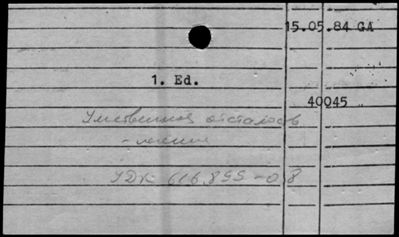 15.05.84 GA
1. Ed.
40045
Умственная отсталость
- лечение
УДК 616.899-08